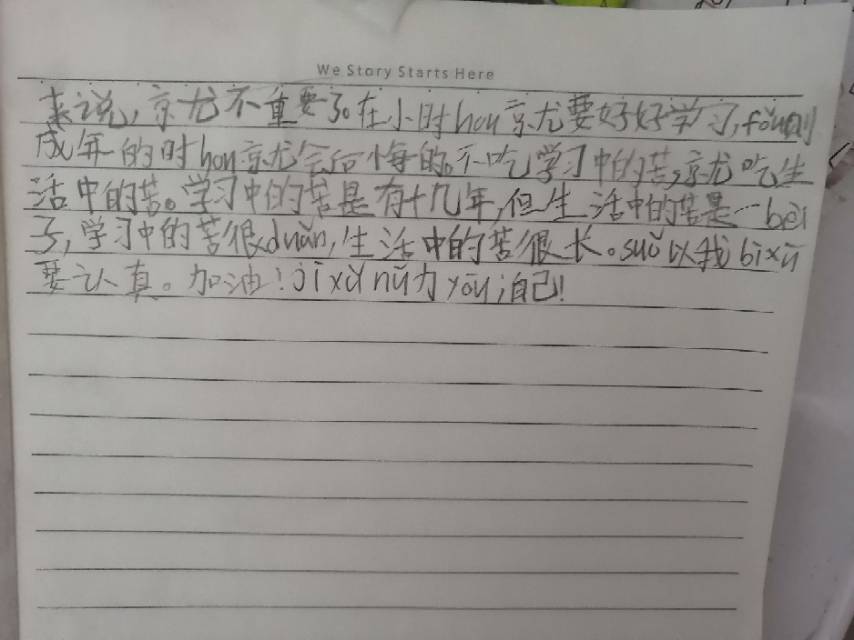 We Story Starts Here
来说,京尤不重要了。在小时hou京尤要好好学习,fǒu则
成年的时hou京尤会后悔的。不吃学习中的苦,京尤吃生
活中的苦。学习中的苦是有十几年,但生活中的苦是一bèi
子,学习中的苦很duǎn,生活中的苦很长。suǒ以我bìxū
要认真。加油!jìxù nǔ力
自己!